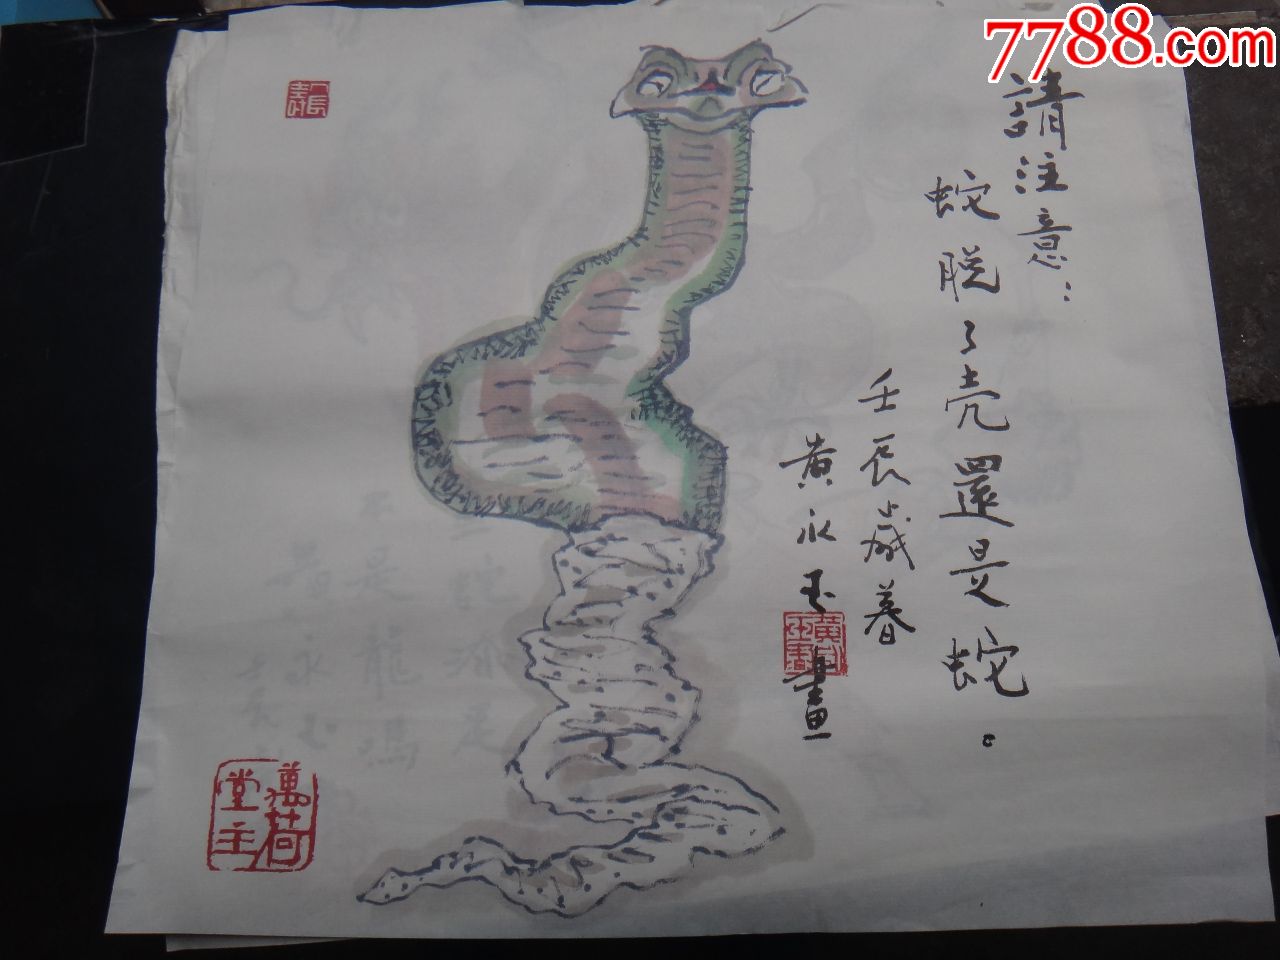 7788.com
請注意：
蛇脱了壳還是蛇。
壬辰歲暮
黄永玉畫
萬荷堂主